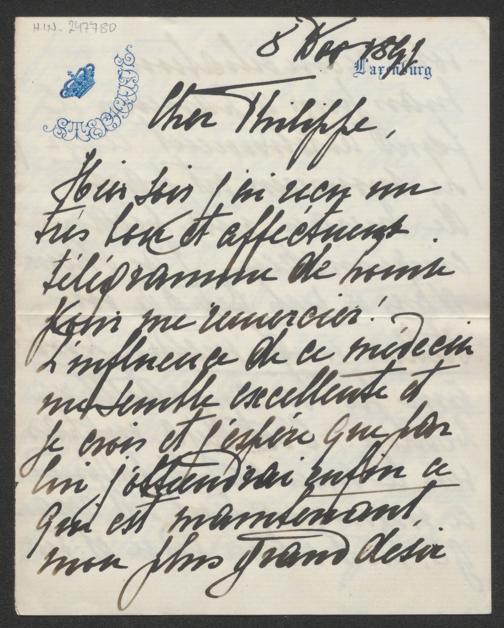 H.I.N. 247780
8 Nov 1891
Laxenburg
STEPHANIE
Cher Philippe,
Hier soir j'ai reçu un
très bon et affectueux
télégramme de
pour me remercier!
L'influence de ce médecin
me semble excellente et
je crois et j'espère que par
lui j'obtiendrai enfin ce
qui est maintenant
mon plus grand désir